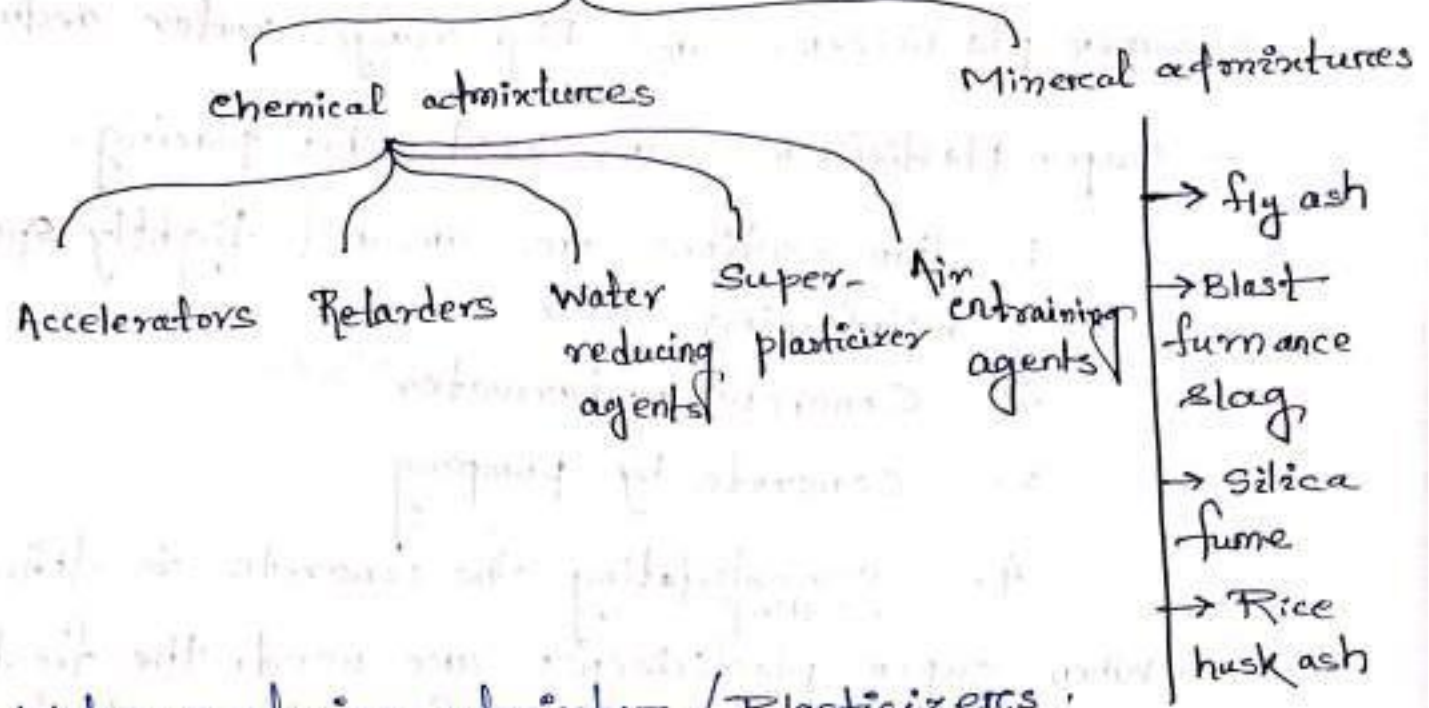 Chemical admixtures
Minercal admixtures
Accelerators
Retarders
Water
reducing
agents
Super-
plasticizer
Air
entraining
agents
→ fly ash
→ Blast
furnance
slag
→ Silica
fume
→ Rice
husk ash
/ Plasticizers :